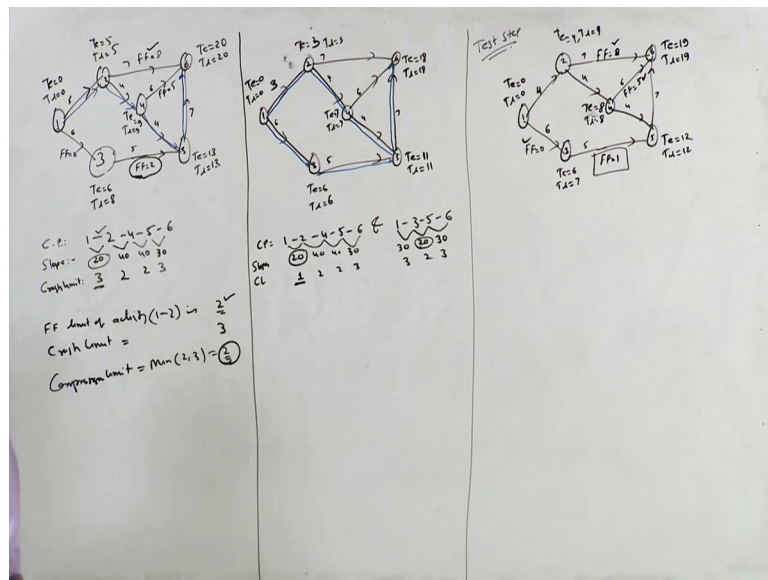 Te=5
TL=5
Te=0
TL=0
1
5
2
7 FF=8
6
Te=20
TL=20
4
4
6
FF=5
Te=9
TL=9
4
7
6
FF=0
3
5
FF=2
5
Te=13
TL=13
Te=6
TL=8
C.P.: 1-2-4-5-6
Slope:- 20 40 40 30
Crash limit: 3 2 2 3
FF limit of activity (1-2) is 2
Crash limit = 3
Compression limit = Min(2,3) = 2
Te=3 TL=3
Te=0
TL=0
1
3
2
7
6
Te=18
TL=18
4
4
6
Te=7
TL=7
4
7
6
3
5
5
Te=11
TL=11
Te=6
TL=6
CP: 1-2-4-5-6 & 1-3-5-6
Slope 20 40 40 30 30 20 30
CL 1 2 2 3 3 2 3
Test Step
Te=4, TL=4
2
7 FF=8
6
Te=19
TL=19
Te=0
TL=0
1
4
4
4
6
FF=5
Te=8
TL=8
4
7
6
FF=0
3
5
FF=1
5
Te=12
TL=12
Te=6
TL=7